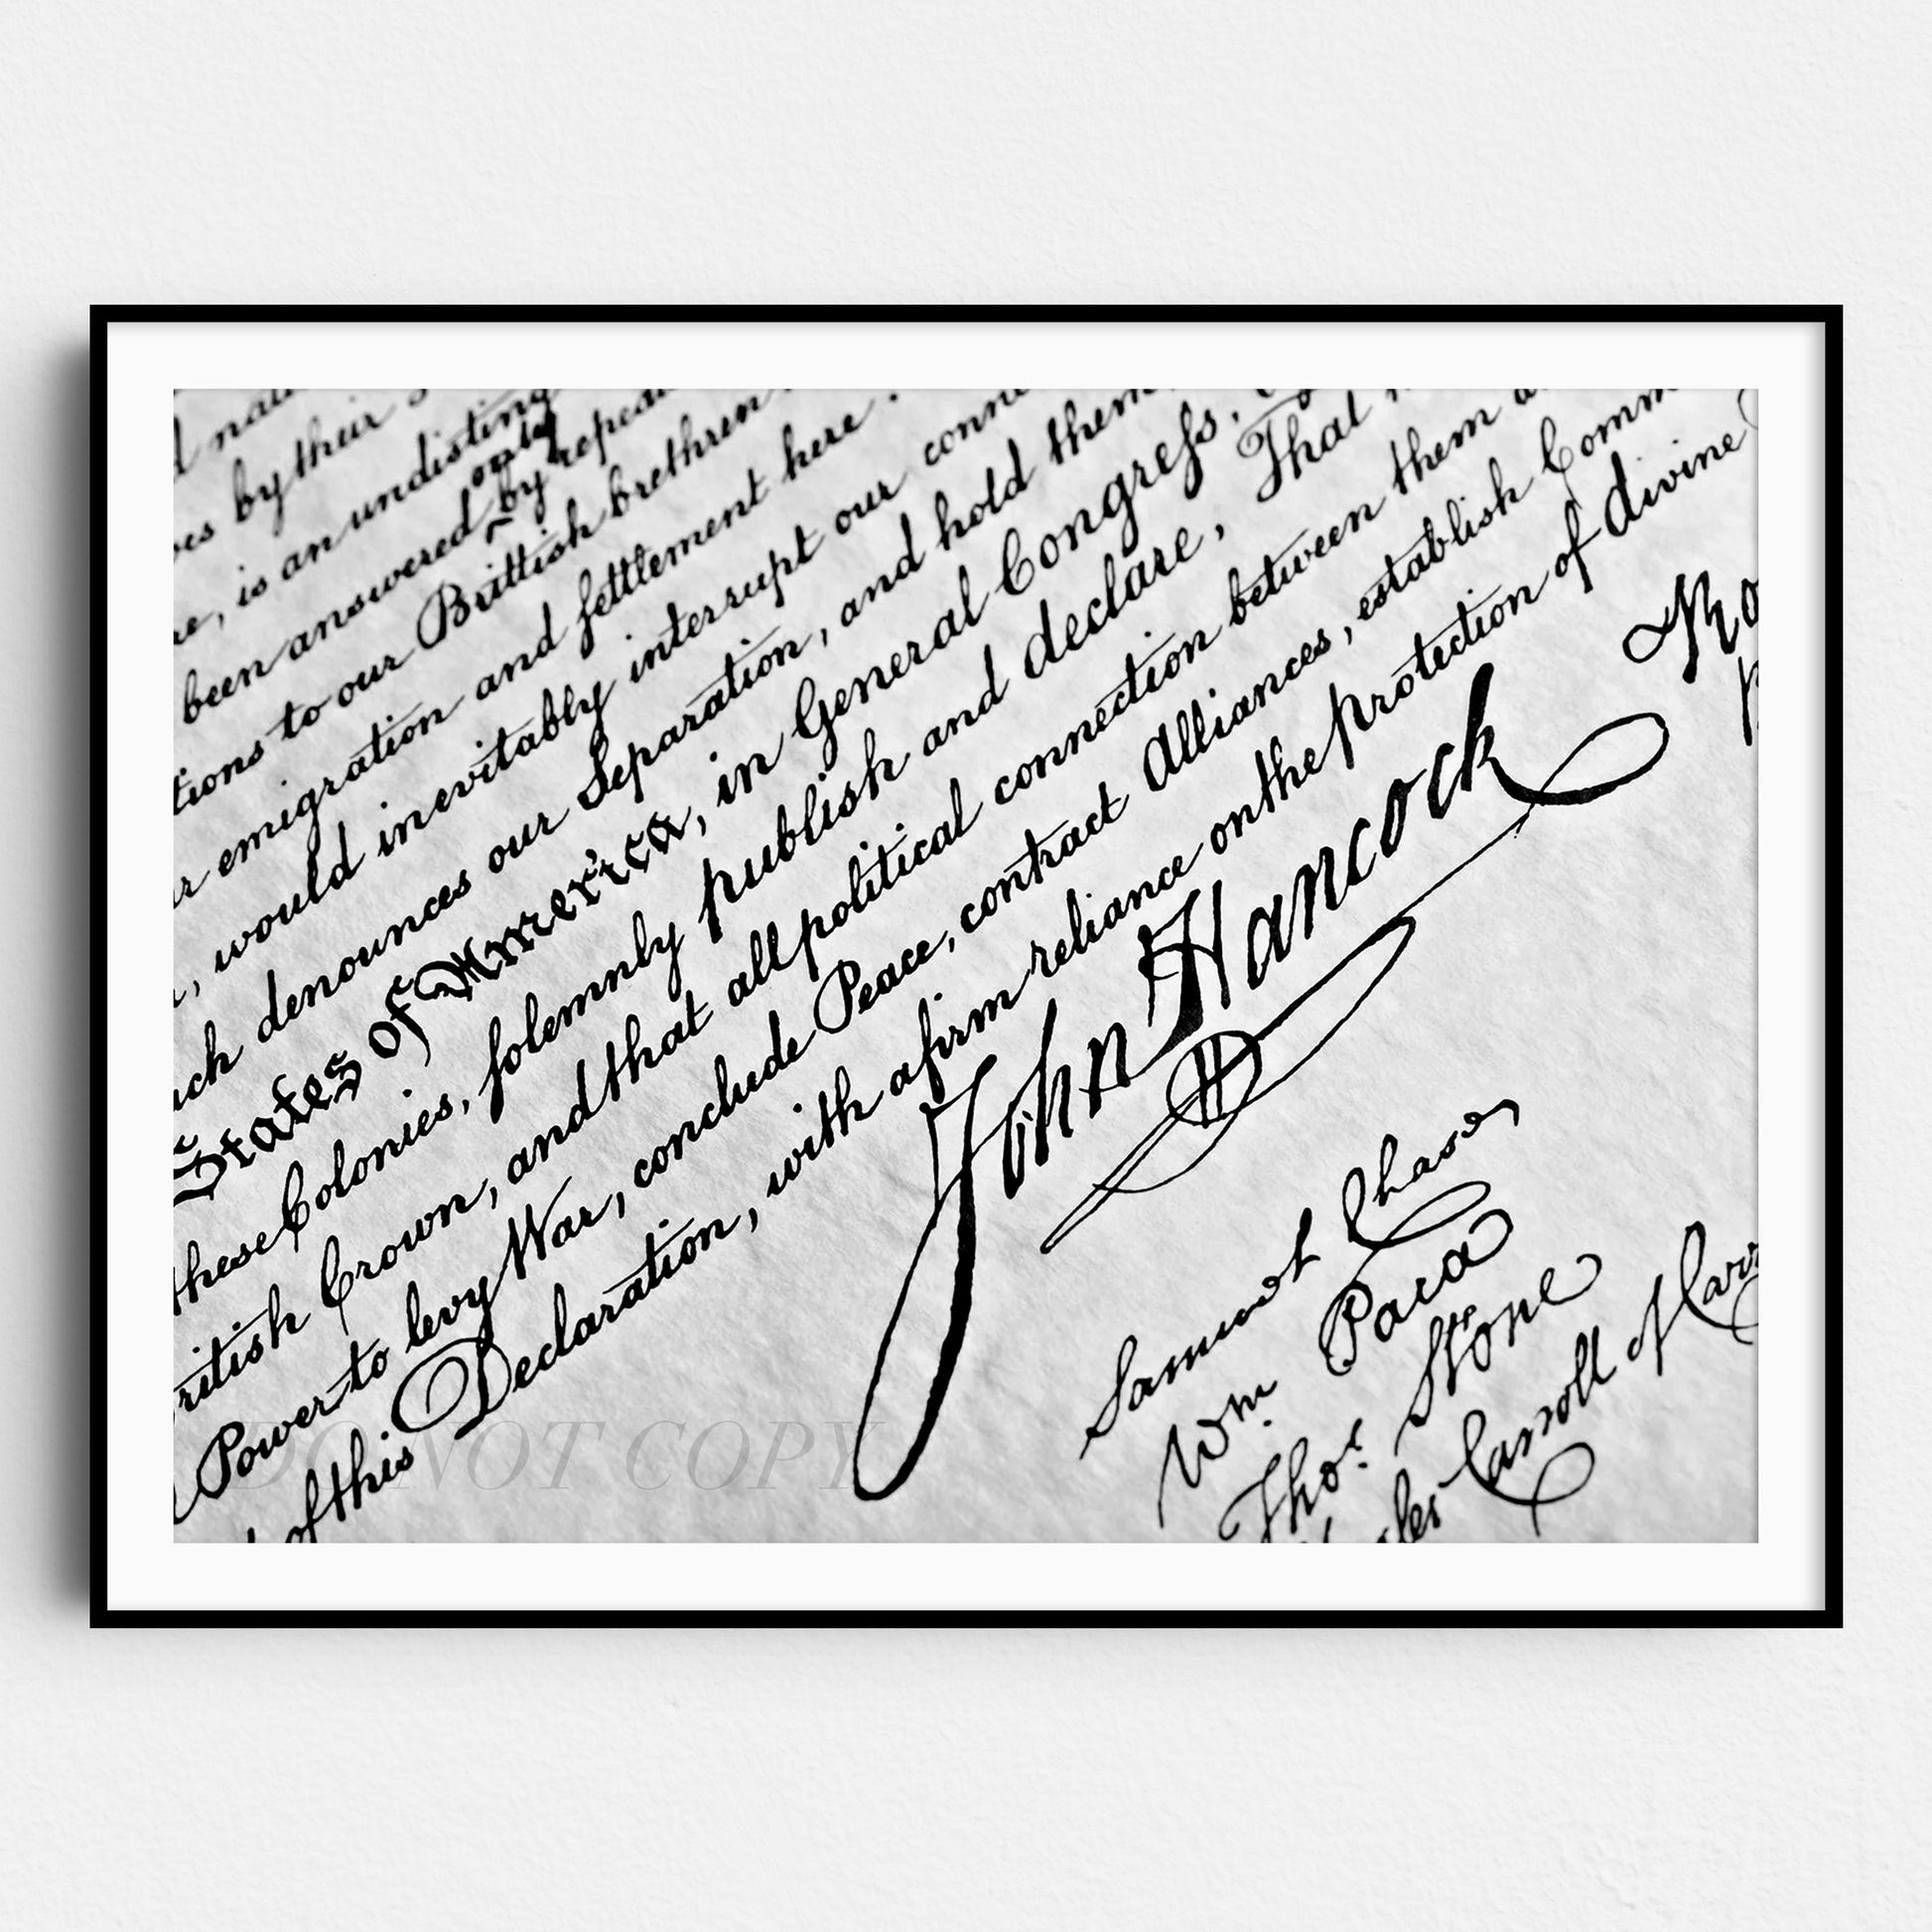 by their
, is an undisting
only
been answered by repea
tions to our Brittish brethren
emigration and settlement here.
, would inevitably interrupt our conne
denounces our Separation, and hold them
States of America, in General Congress,
these Colonies, solemnly publish and declare, That
ritish Crown, and that all political connection between them
Power to levy War, conclude Peace, contract Alliances, establish Comm
of this Declaration, with a firm reliance on the protection of divine
John Hancock
Samuel Chase
Wm Paca
Thos. Stone
Carroll of
DO NOT COPY